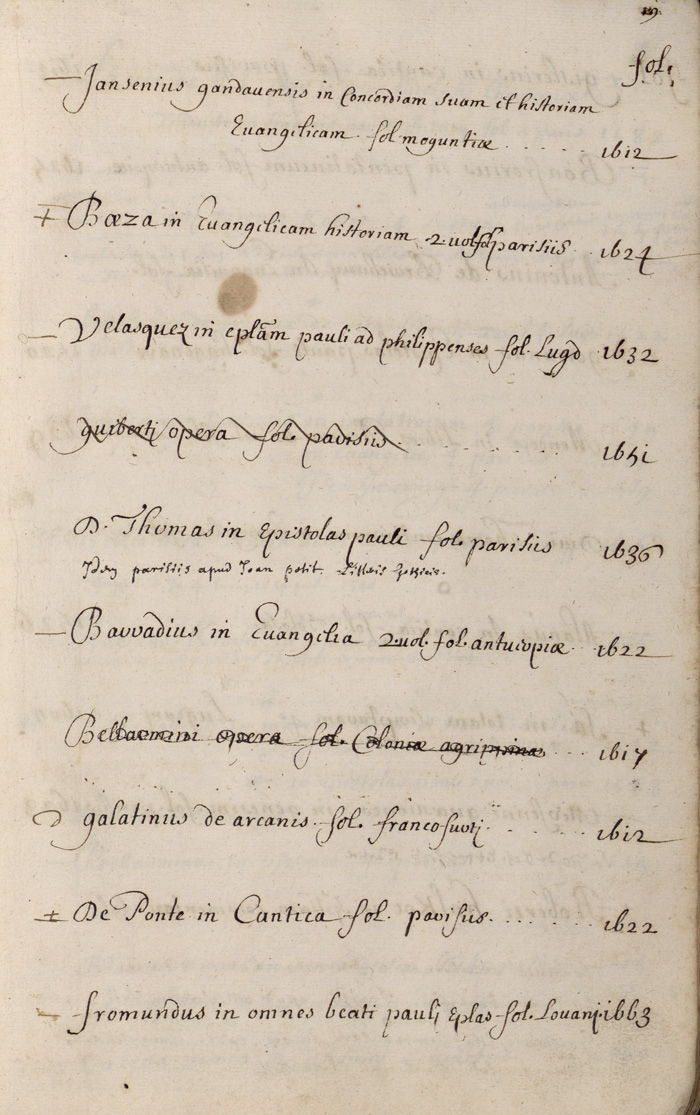 19
fol.
Jansenius gandauensis in Concordiam suam et historiam
Euangelicam. fol moguntiæ . . . . . 1612
+ Bæza in Euangelicam historiam 2. uol fol parisiis . 1624
Velasquez in eplãm pauli ad philippenses fol. Lugd 1632
guiberti opera fol. parisiis . . . . . . . 1651
D. Thomas in Epistolas pauli fol. parisiis 1636
Idem parisiis apud Joan petit.
Barradius in Euangelia 2. uol. fol. antuerpiæ . . 1622
Bellarmini opera fol. Coloniæ agrippinæ . . . 1617
galatinus de arcanis. fol. francofurti . . . . . 1612
+ De Ponte in Cantica fol. parisiis . . . . . . 1622
fromundus in omnes beati pauli Eplas fol. Louanij. 1663